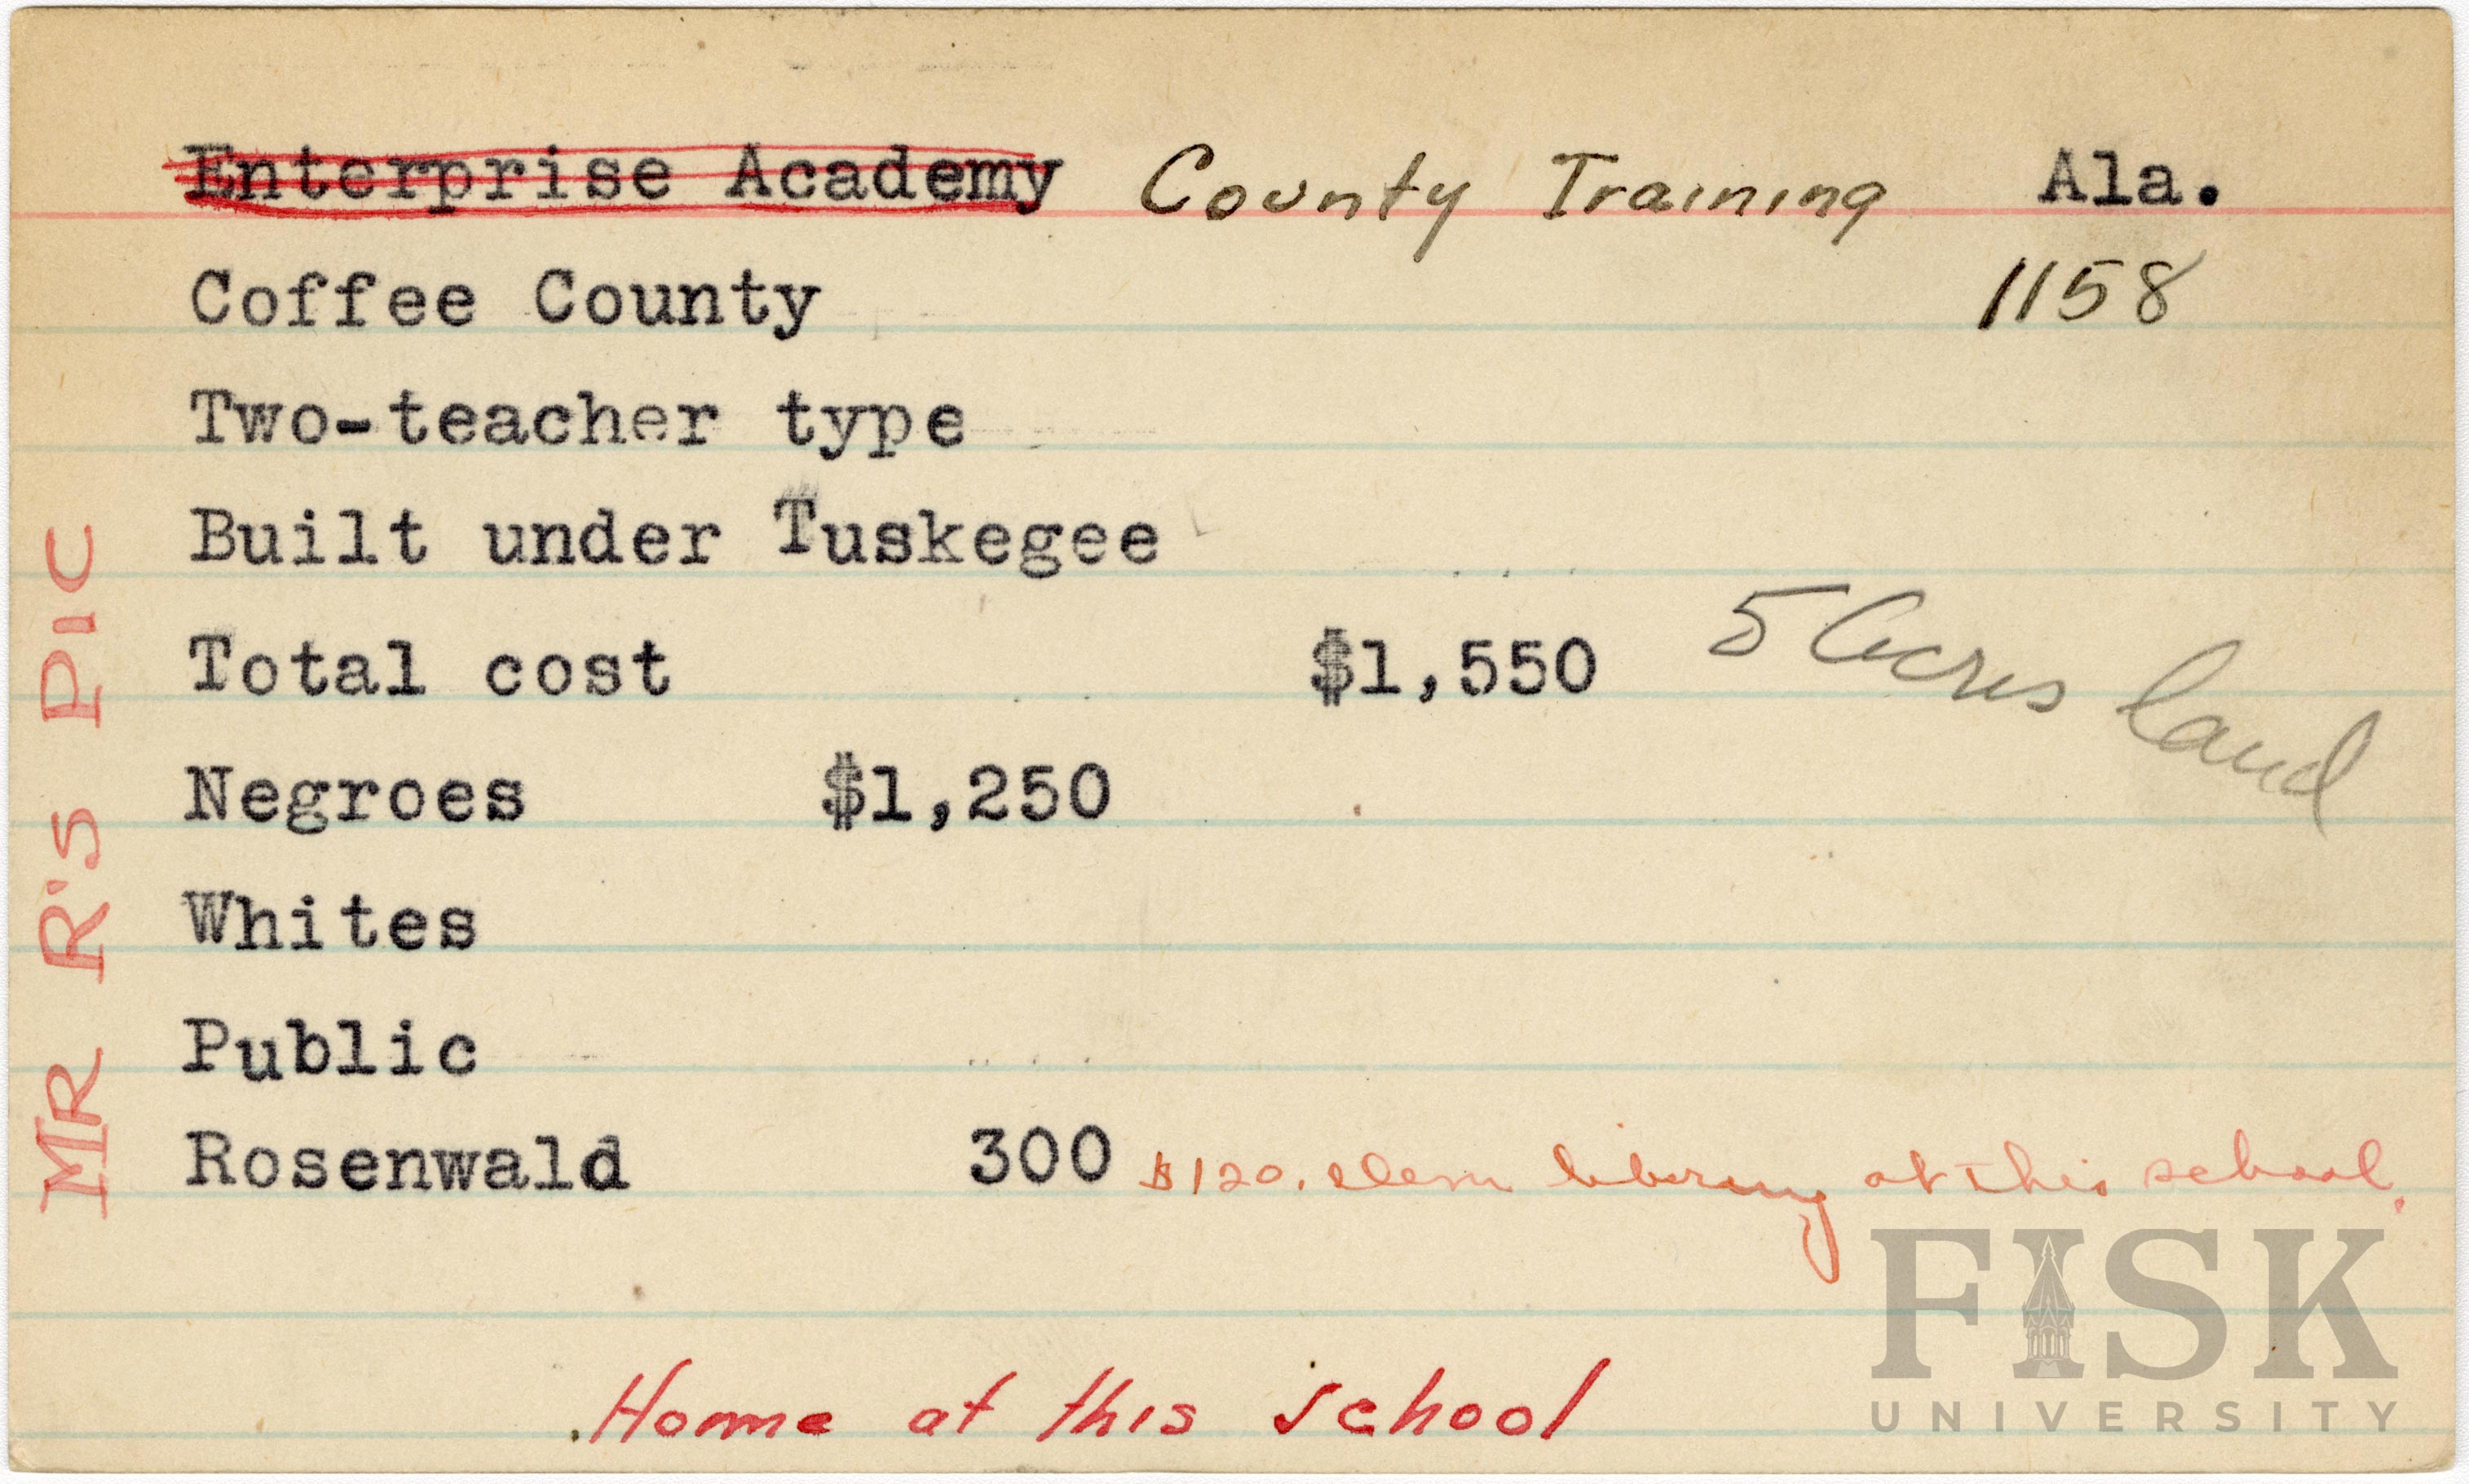 Enterprise Academy County Training Ala.
Coffee County 1158
Two-teacher type
Built under Tuskegee
Total cost $1,550 5 Acres land
Negroes $1,250
Whites
Public
Rosenwald 300 $120. elem library at this school.
Home at this school
MR R's PIC
FISK
UNIVERSITY